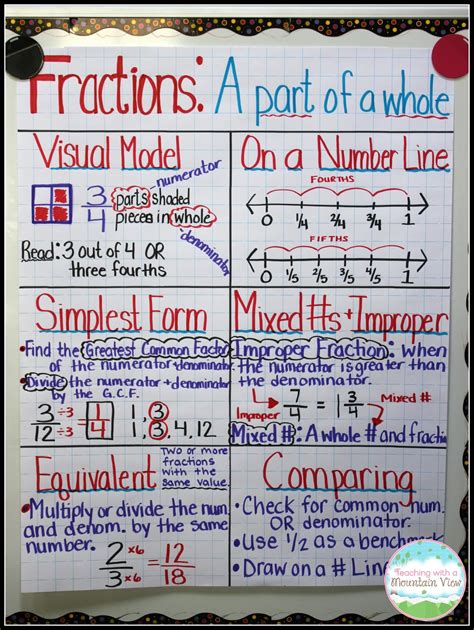 Fractions: A part of a whole
Visual Model
numerator
3 parts shaded
4 pieces in whole
denominator
Read: 3 out of 4 OR
three fourths
On a Number Line
FOURTHS
0 1/4 2/4 3/4 1
FIFTHS
0 1/5 2/5 3/5 4/5 1
Simplest Form
• Find the Greatest Common Factor
of the numerator + denominator.
• Divide the numerator + denominator
by the G.C.F.
3 ÷3 = 1 1, 3
12 ÷3 4 1, 3, 4, 12
Mixed #s + Improper
Improper Fraction: When
the numerator is greater than
the denominator.
7/4 = 1 3/4 Mixed #
Improper
Mixed #: A whole # and fraction
Equivalent
Two or more
fractions
with the
same value.
• Multiply or divide the num.
and denom. by the same
number.
2 x6 = 12
3 x6 18
Comparing
• Check for common num.
OR denominator.
• Use 1/2 as a benchm
• Draw on a # Line
Teaching with a
Mountain View